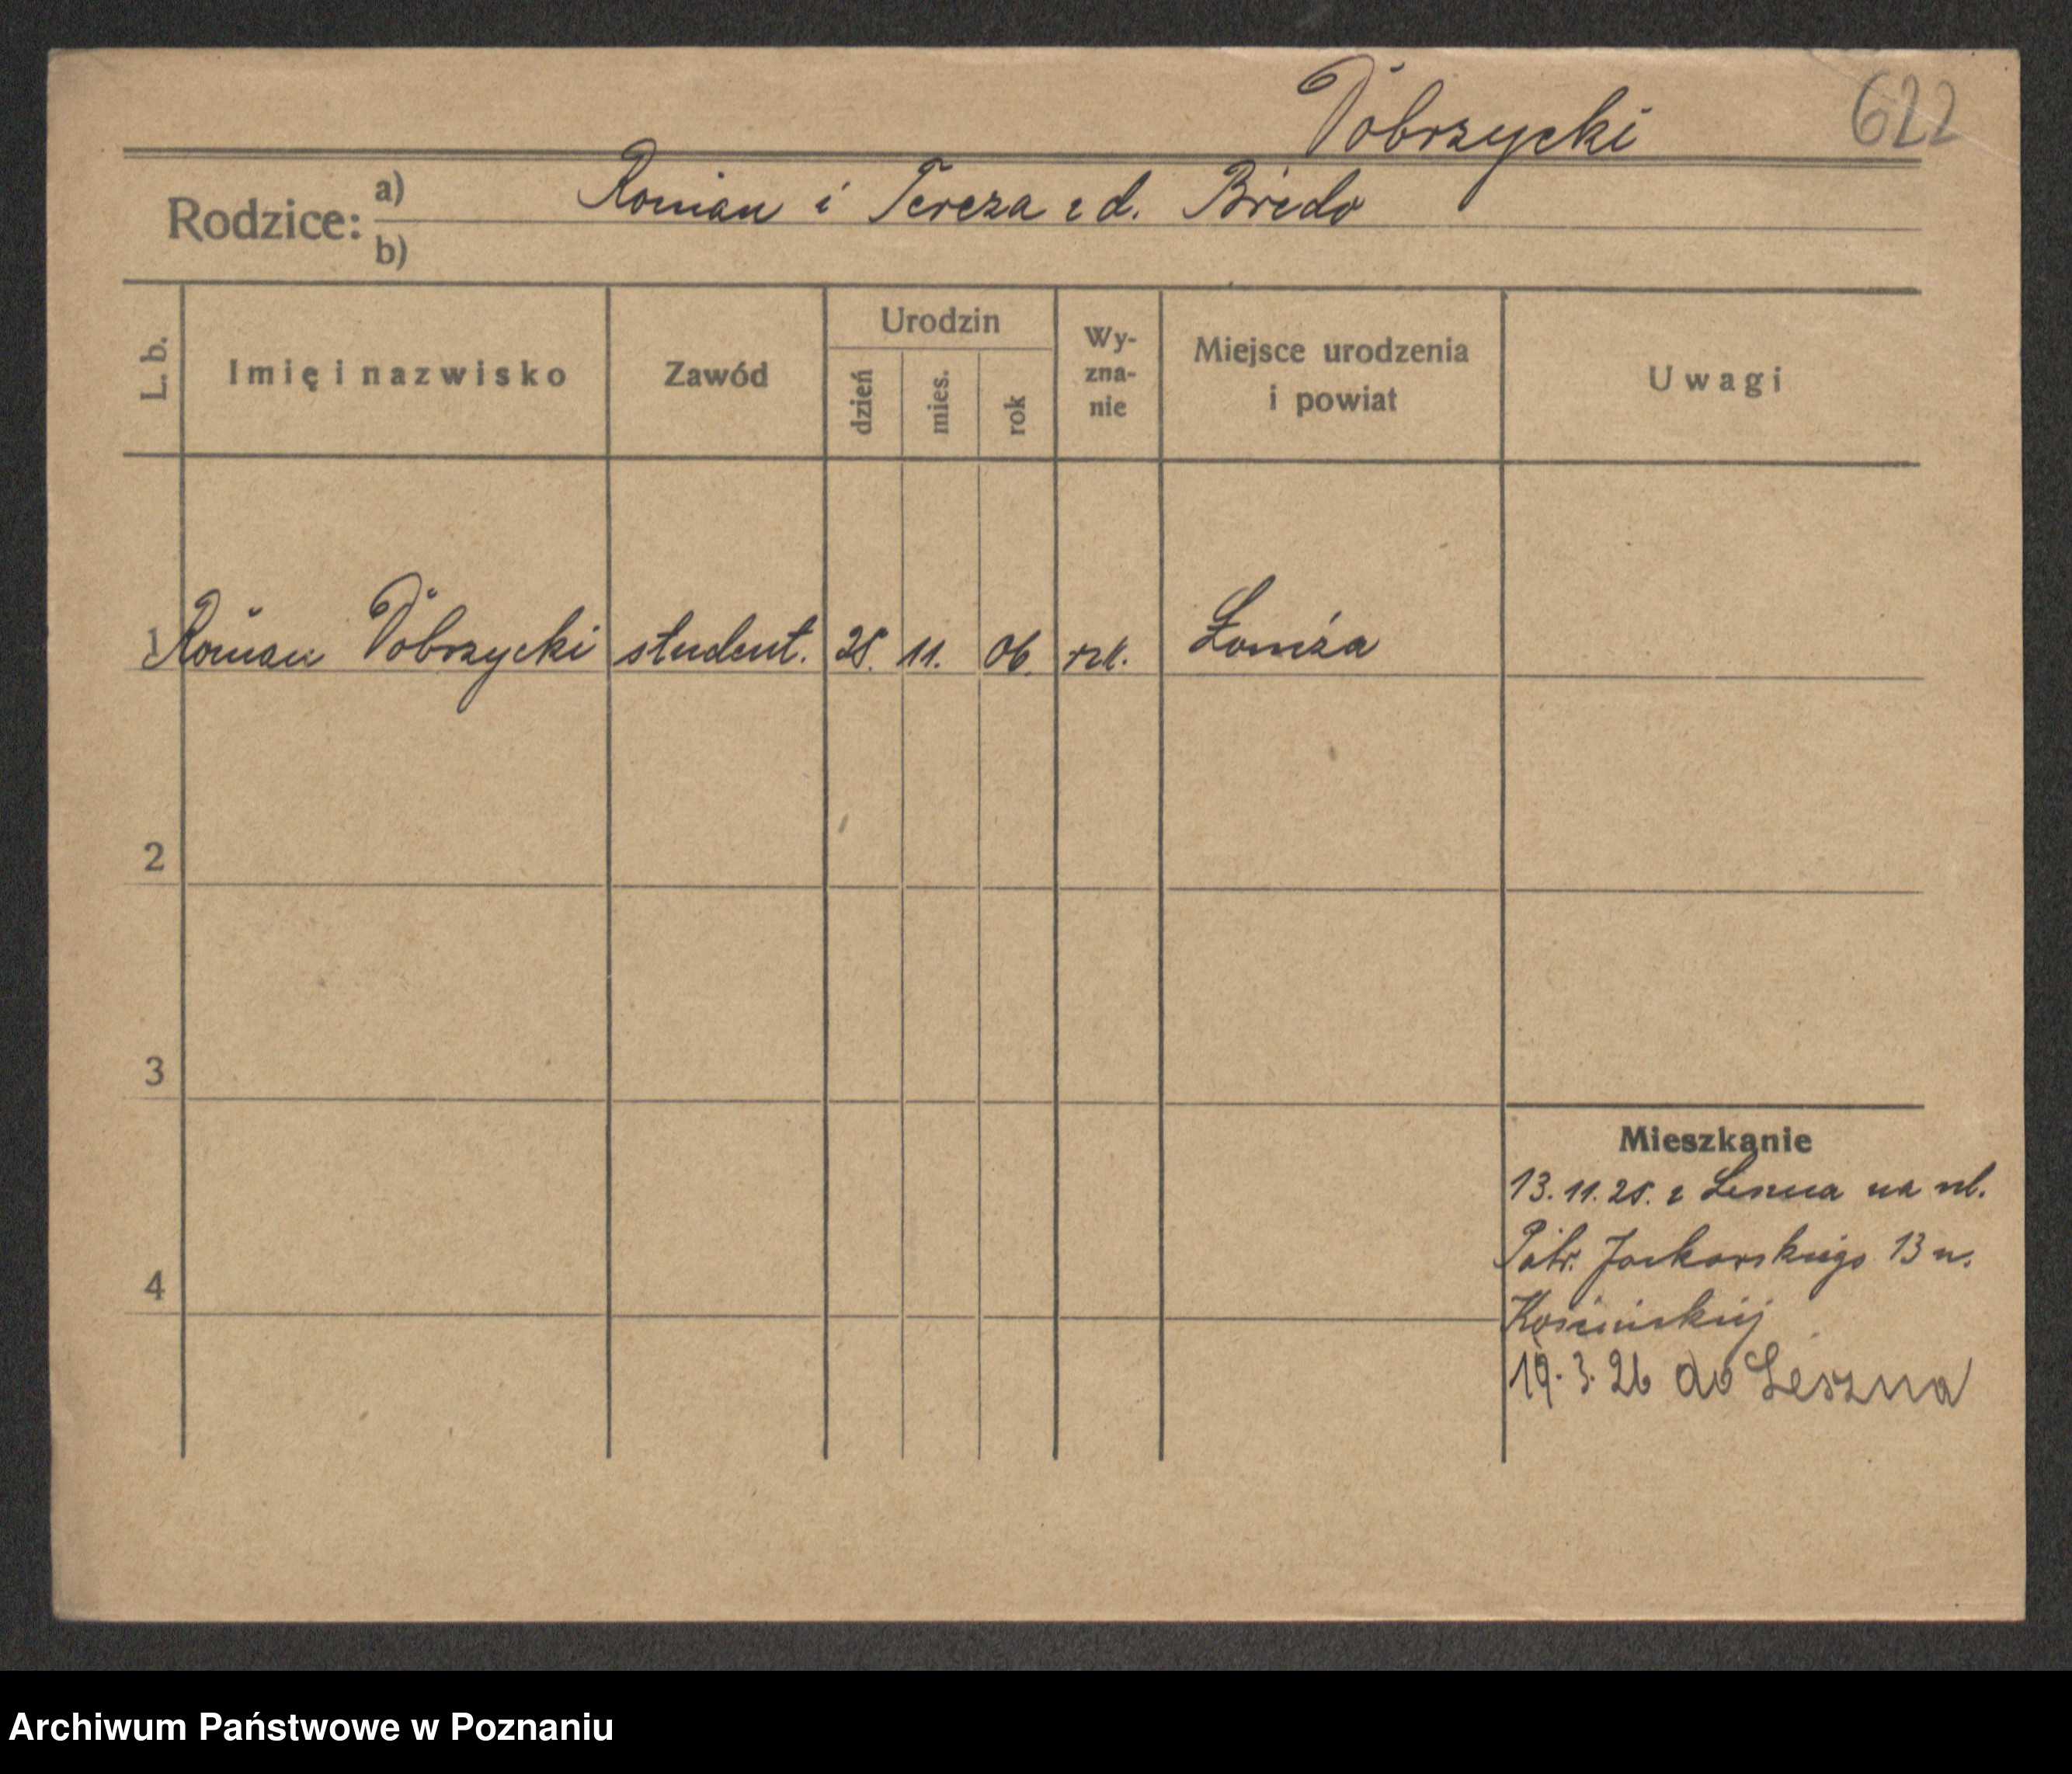 Dobrzycki 622
Rodzice: a) Roman i Tereza z d. Bredo
b)
L. b. Imię i nazwisko Zawód Urodzin dzień mies. rok Wy-zna-nie Miejsce urodzenia i powiat Uwagi
1 Roman Dobrzycki student. 28. 11. 06. rzk. Łomża
2
3
Mieszkanie
13. 11. 25. z Leszna na ul.
Patr. Jackowskiego 13 u.
4
19. 3. 26 do Leszna
Archiwum Państwowe w Poznaniu